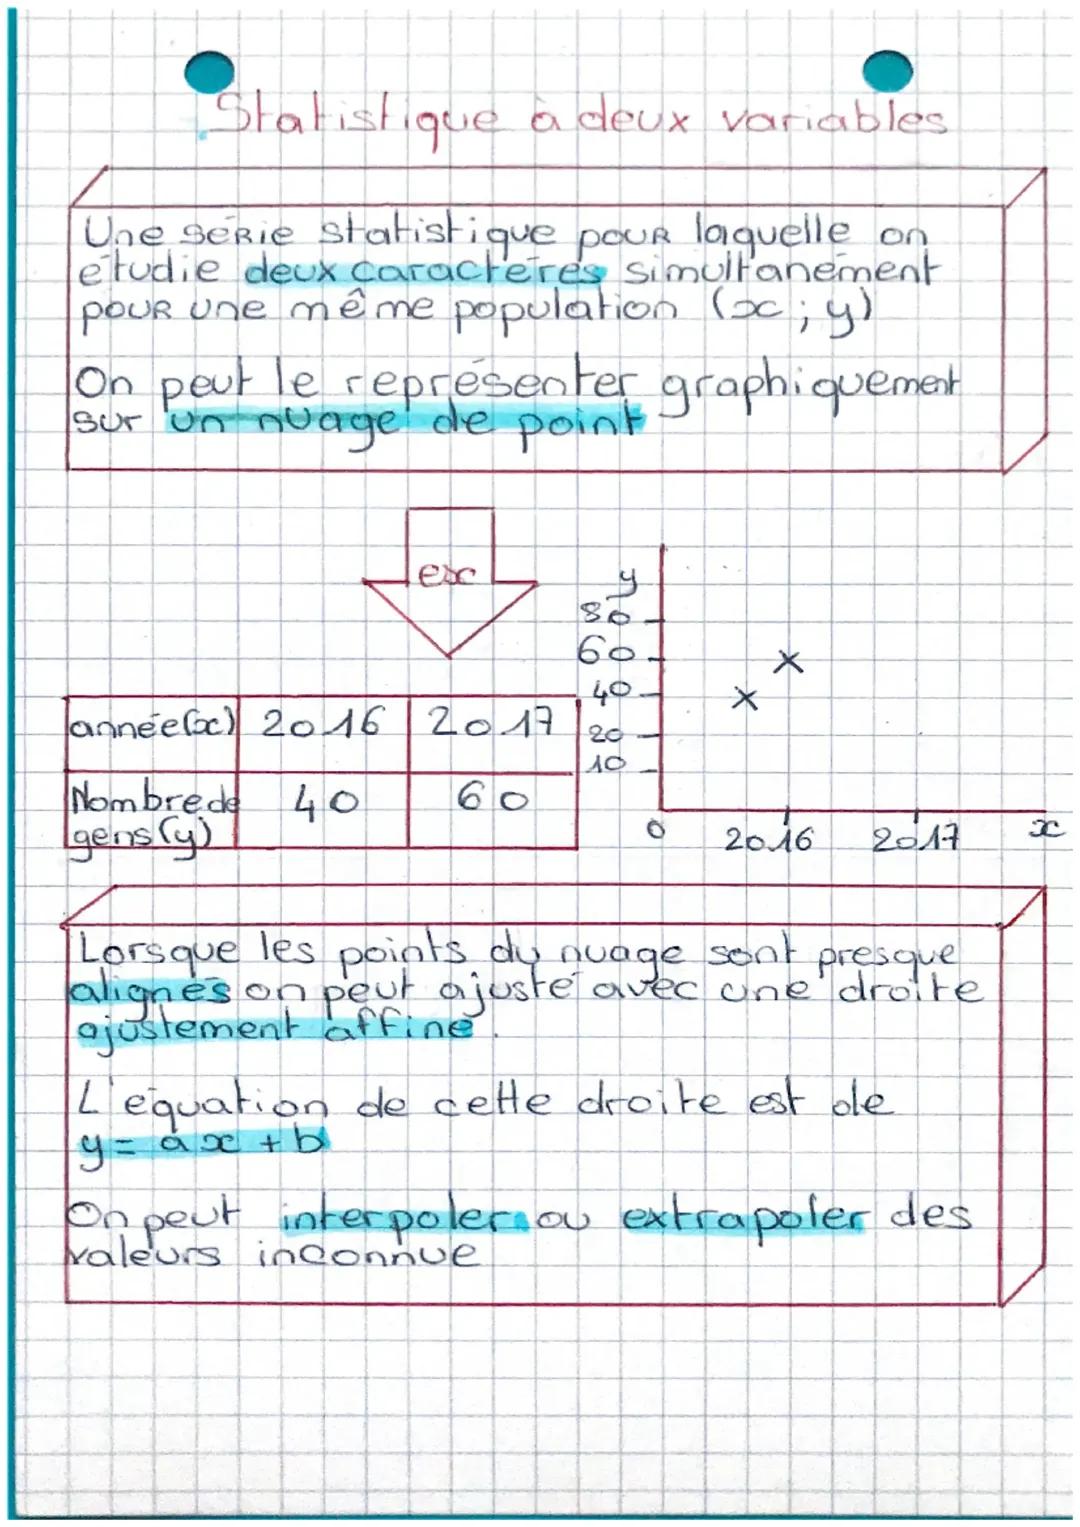 Statistique à deux variables
Une série statistique pour laquelle on
étudie deux caractères simultanément
pour une même population (x ; y)
On peut le représenter graphiquement
sur un nuage de point
ex
y
80
60
40
20
10
0
2016
2017
x
année(x) 2016 2017
Nombre de 40 60
gens (y)
Lorsque les points du nuage sont presque
alignés on peut ajusté avec une droite
ajustement affine.
L'équation de cette droite est de
y = ax + b
On peut interpoler ou extrapoler des
valeurs inconnue